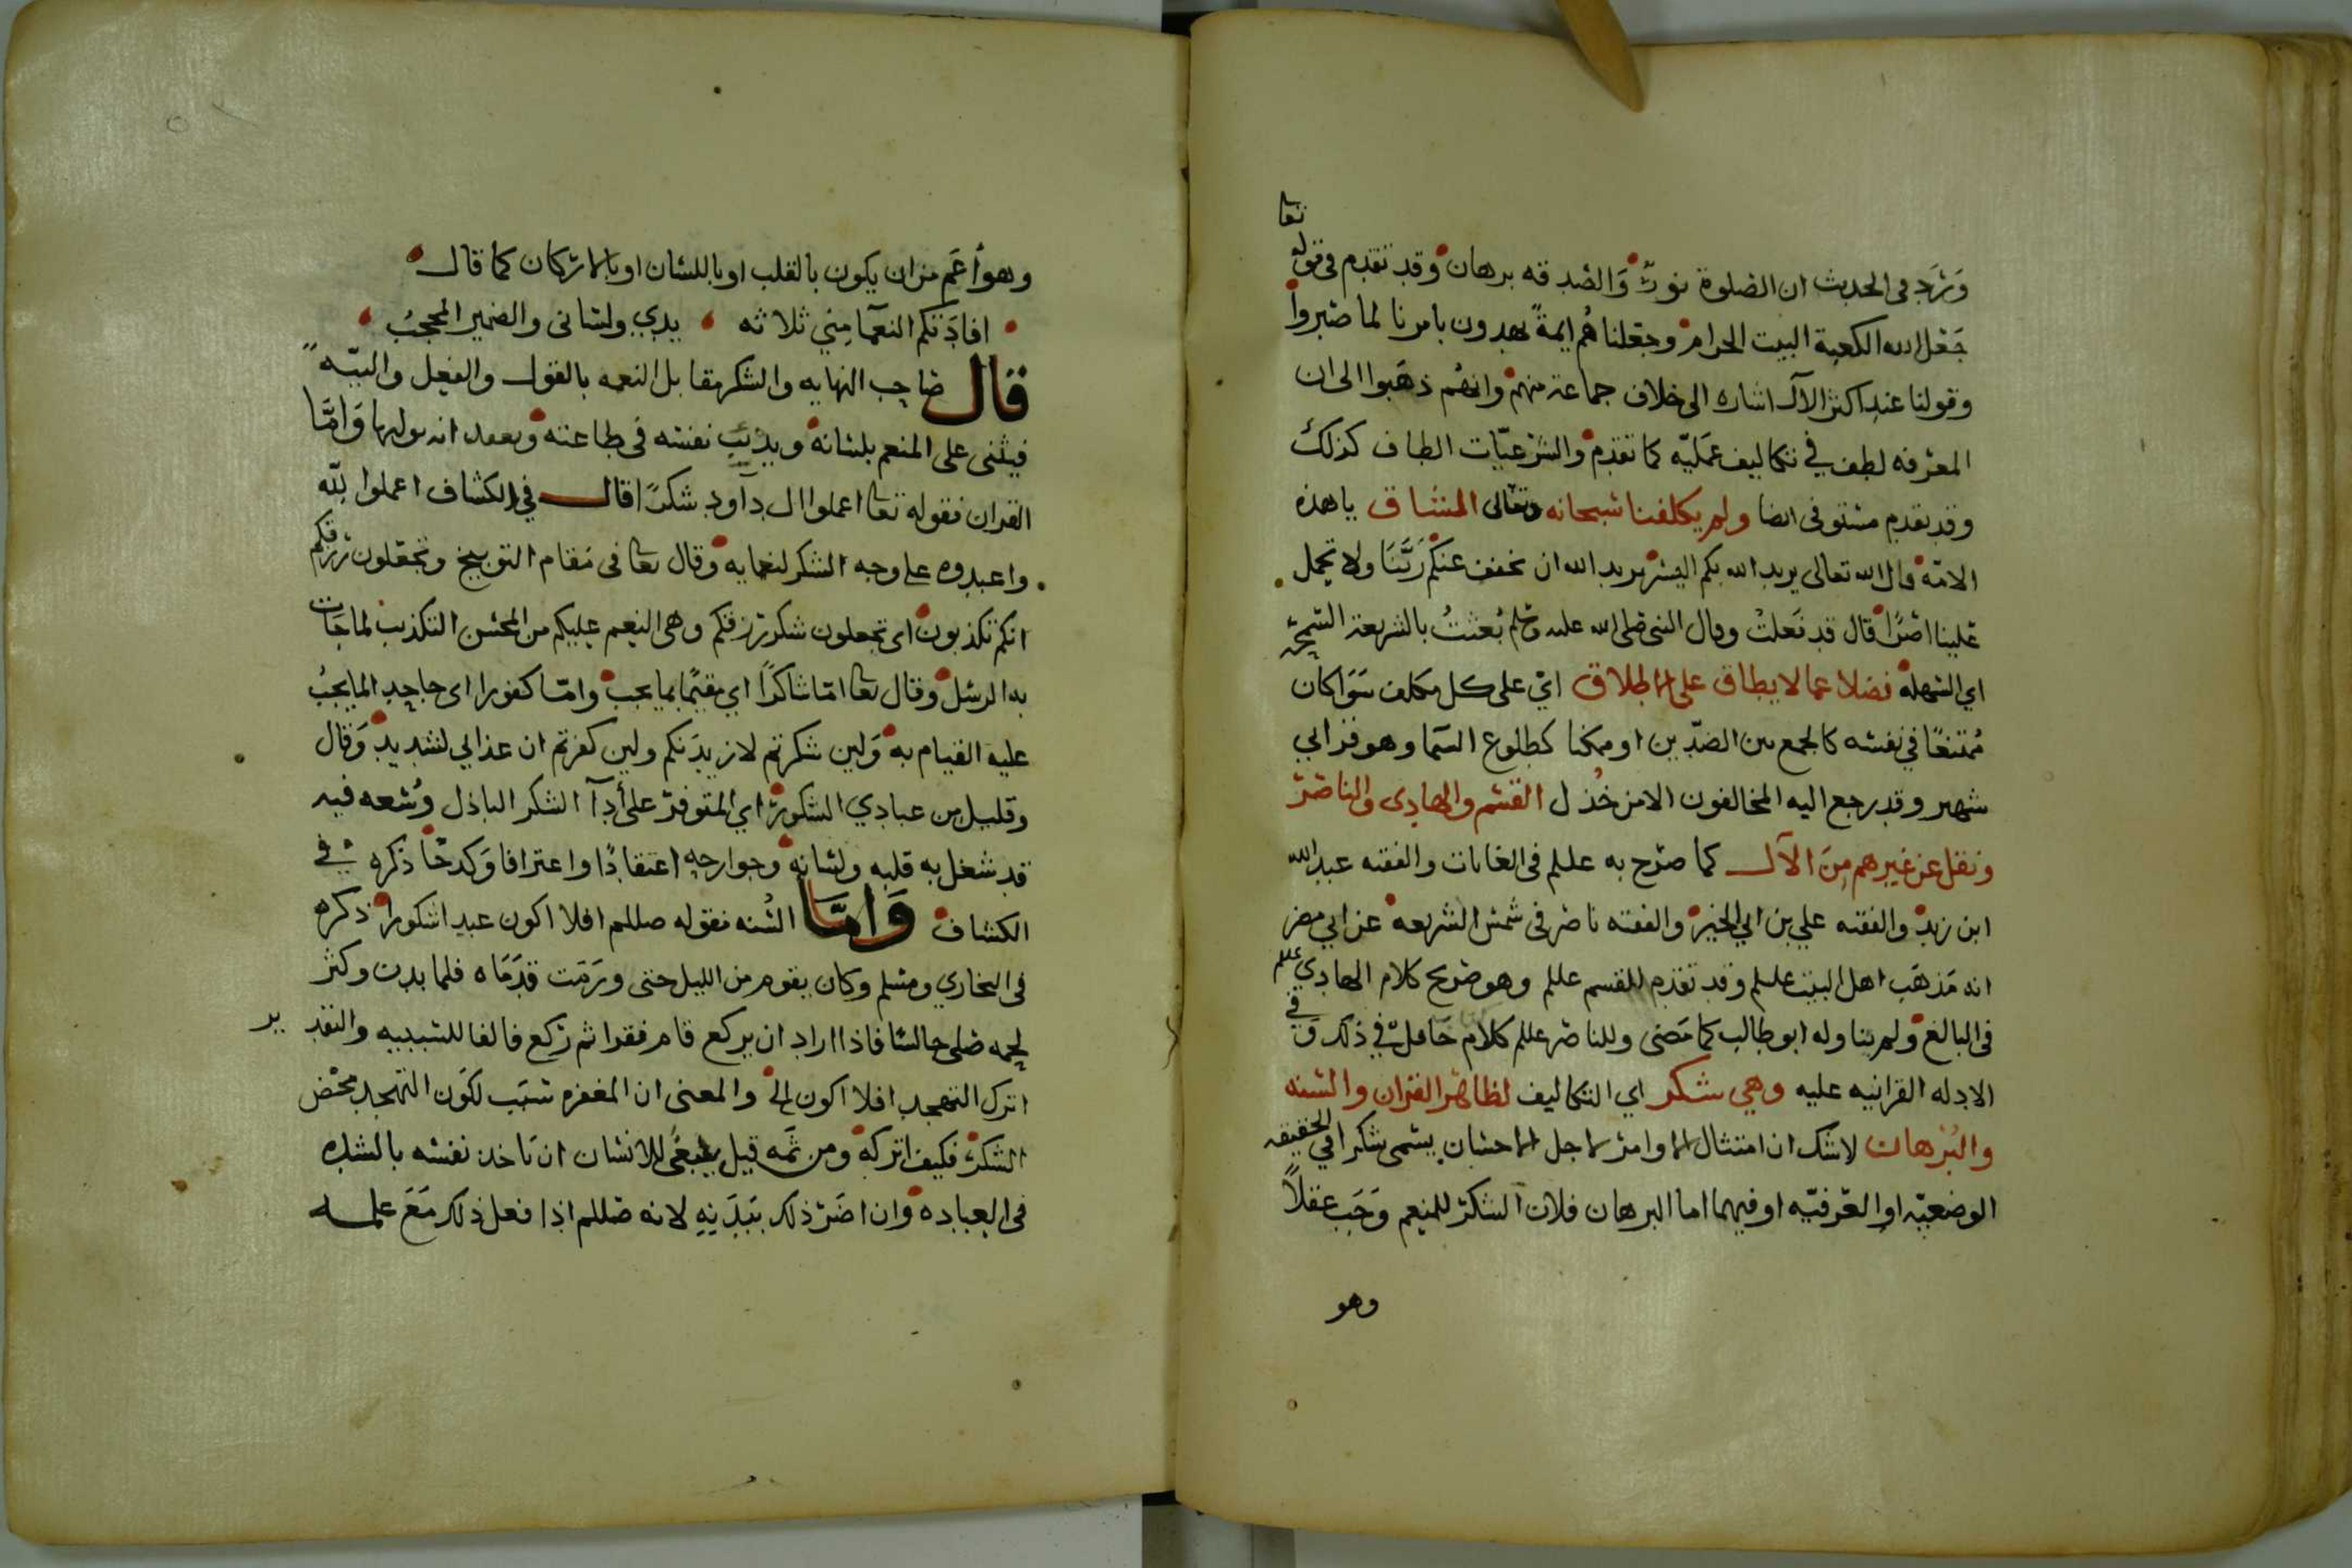 وَرَدَ في الحديث ان الصلوة نورٌ والصدقه برهان وقد تقدم في قوله تعا
جَعَل الله الكعبة البيت الحرام وجعلناهُم ايمةً يهدون بامرنا لما صبروا
وقولنا عند اكثر الآل اشاره الى خلاف جماعة منهم وانهُم ذهَبوا الى ان
المعرفه لطف في تكاليف عمَليّه كما تقدم والشرعيّات الطاف كذلك
وقد تقدم مستوفى ايضا ولم يكلفنا سبحانه وتعالى المشاق يا هذه
الامّه قال الله تعالى يريد الله بكم اليسر يريد الله ان يخفف عنكم رَبَّنَا ولا تحمل
علينا اصرًا قال قد فعلتُ وقال النبي صلى الله عليه وسلم بُعثتُ بالشريعة السّمحَة
اي السّهله فضلا عما لا يطاق على الاطلاق ايْ على كل مكلف سَوَا كان
مُمتنعًا في نفسه كالجمع بين الضدّين او ممكنا كطلوع السّما وهو فرا ابي
شهر وقد رجع اليه المخالفون الا من خُذل القسم والهادي والناصر
ونقل عن غيرهم مِنَ الآل كما صرّح به عليلم في الغايات والفقيه عبد الله
ابن زيد والفقيه علي بن ابي الخير والفقيه ناصر في شمس الشريعه عن ابي مضر
انه مَذهَب اهل البيت عليلم وقد تقدم للقسم عليلم وهو صريح كلام الهادي عليلم
في البالغ ولم يتاوله ابو طالب كما مَضى وللناصر عليلم كلام حَافلٌ في ذلك وَفي
الادله القرانيه عليه وهي شكر اي التكاليف لظاهر القران والسّنه
والبُرهان لا شك ان امتثال الاوامر لاجل الاحسان يسمى شكرا في الحقيقه
الوضعيّه او العُرفيّه او فيهما اما البرهان فلان الشكر للمنعم وَجَبَ عقلاً
وهو
وهو أعَم من ان يكون بالقلب او باللسان او بالاركان كما قال
افادَتكم النعمآ مِنّي ثلاثه يدي ولساني والضمير المحجبُ
قال صاحب النهايه والشكر مقابل النعمه بالقول والفعل والنيّه
فيثني على المنعم بلسانه ويدئبَ نفسَه في طاعته ويعتقد انه موليها وَامَّا
القران فقوله تعا اعملوا ال دآود شكرًا قال في الكشاف اعملوا للّه
واعبدوه على وجه الشكر لنعمايه وقال تعا في مَقام التوبيخ وتجعَلون رزقكم
انكم تكذبون اي تجعلون شكر رزقكم وهي النعم عليكم من المحسن التكذيب لما جَات
به الرسل وقال تعا امّا شاكرًا اي مقيمًا بما يجب وامّا كفورا اي جاحدا لما يجبُ
عليه القيام به وَلين شكرتم لازيدَنكم ولين كفرتم ان عذابي لشديد وَقال
وقليل من عبادي الشكور اي المتوفر على أدآ الشكر الباذل وُسْعه فيه
قد شغل به قلبه ولسَانه وجوارحه اعتقادًا واعترافا وَكدحًا ذكره في
الكشاف وَامَّا السُنه فقوله صللم افلا اكون عبدا شكورا ذكره
في البخاري ومسلم وكان يقوم من الليل حتى ورَمَت قدَمَاه فلما بدن وكثر
لحمه صلى جالسًا فاذا اراد ان يركع قام فقرا ثم ركع فالفا للتسبيه والتقدير
اترك التهجد افلا اكون الخ والمعنى ان المغفره سَبَب لكَون التهجد محض
الشكر فكيف اتركه ومن ثَمه قيل ينبغى للانسان ان يَاخذ نفسه بالشده
في العباده وان اضَرّ ذلك بِبَدَنِهِ لانه صللم اذا فعل ذلك مَعَ علمه